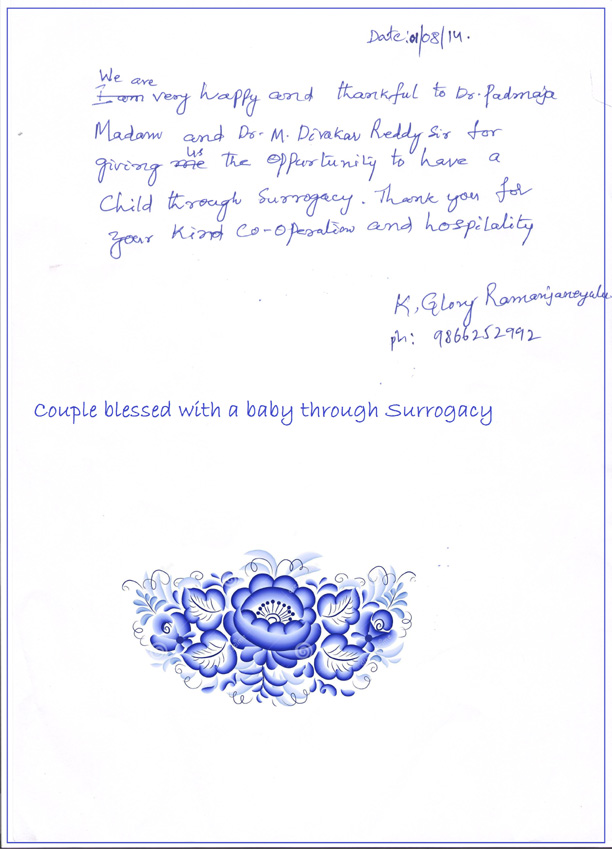 Date: 01/08/14.
We are
I am very happy and thankful to Dr. Padmaja
Madam and Dr. M. Divakar Reddy Sir for
us
giving me the oppurtunity to have a
Child through Surrogacy. Thank you for
your Kind Co-operation and hospilality
K. Glory Ramanjaneyulu
ph: 9866252992
Couple blessed with a baby through Surrogacy